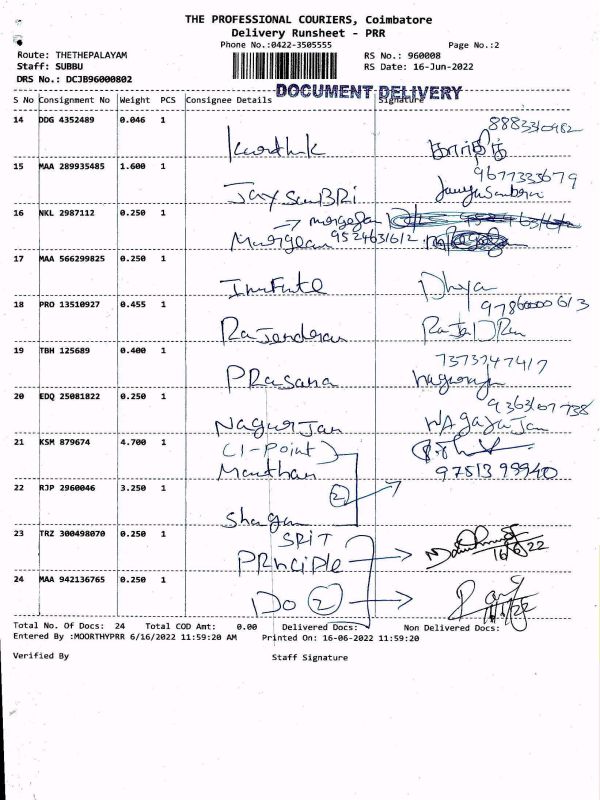 THE PROFESSIONAL COURIERS, Coimbatore
Delivery Runsheet - PRR
Phone No.:0422-3505555 Page No.:2
Route: THETHEPALAYAM RS No.: 960008
Staff: SUBBU RS Date: 16-Jun-2022
DRS No.: DCJB96000802
DOCUMENT DELIVERY
S No Consignment No Weight PCS Consignee Details Signature
8883310982
14 DDG 4352489 0.046 1
Karthik கார்திக்
9677333679
15 MAA 289935485 1.600 1
16 NKL 2987112 0.250 1
9524631612
17 MAA 566299825 0.250 1
Dhya
18 PRO 13510927 0.455 1
Rajendran
19 TBH 125689 0.400 1
7373747417
PRasana
20 EDQ 25081822 0.250 1
NagurJan
21 KSM 879674 4.700 1
(I-Point)
Manthan 9751399940
22 RJP 2960046 3.250 1
2
23 TRZ 300498070 0.250 1
SRIT
PRnciple 16/6/22
24 MAA 942136765 0.250 1
Do 2
Total No. Of Docs: 24 Total COD Amt: 0.00 Delivered Docs: Non Delivered Docs:
Entered By :MOORTHYPRR 6/16/2022 11:59:20 AM Printed On: 16-06-2022 11:59:20
Verified By Staff Signature